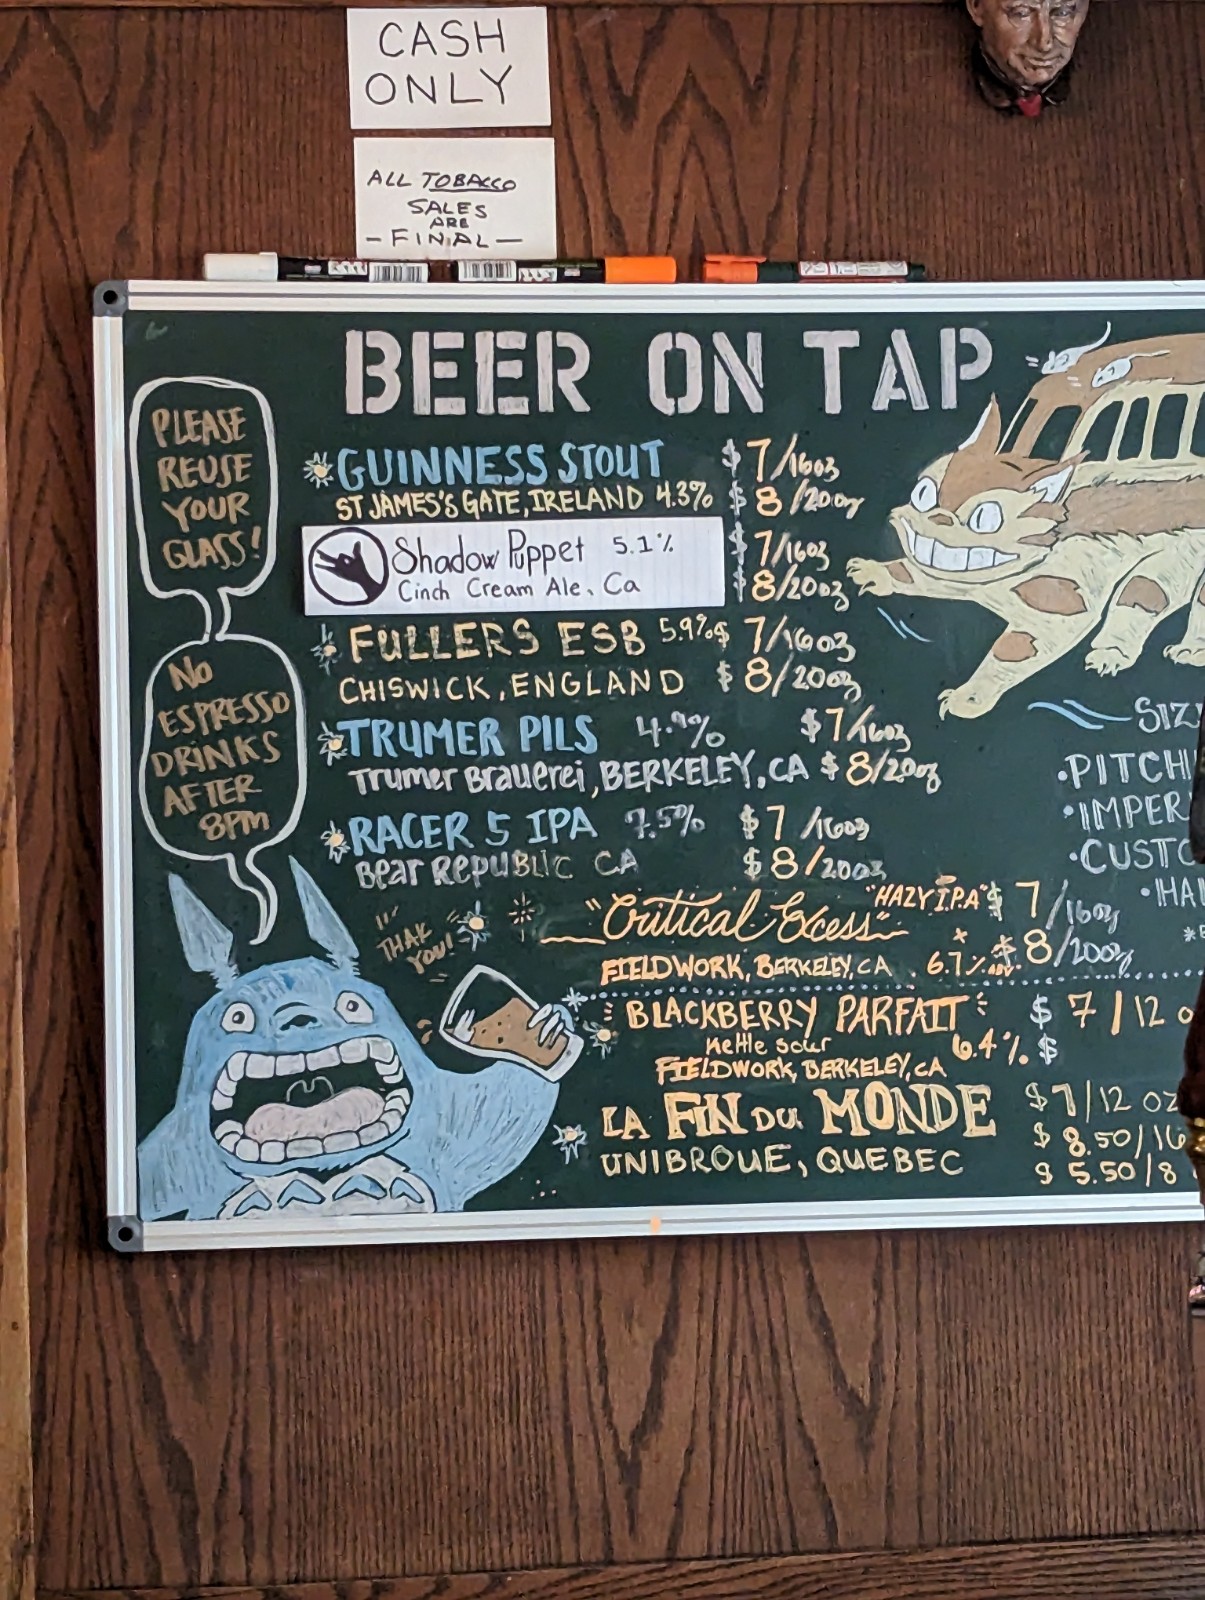 CASH
ONLY
ALL TOBACCO
SALES
ARE
- FINAL -
BEER ON TAP
PLEASE
REUSE
YOUR
GLASS!
NO
ESPRESSO
DRINKS
AFTER
8PM
GUINNESS STOUT $7/16oz
ST JAMES'S GATE, IRELAND 4.3% $8/20oz
Shadow Puppet 5.1% $7/16oz
Cinch Cream Ale, Ca $8/20oz
FULLERS ESB 5.9% $7/16oz
CHISWICK, ENGLAND $8/20oz
TRUMER PILS 4.9% $7/16oz
Trumer Brauerei, BERKELEY, CA $8/20oz
RACER 5 IPA 7.5% $7/16oz
Bear Republic CA $8/20oz
"Critical Excess" "HAZY I.P.A" $7/16oz
FIELDWORK, BERKELEY, CA . 6.7% ABV. $8/20oz
BLACKBERRY PARFAIT $7/12 o
Kettle sour 6.4% $
FIELDWORK, BERKELEY, CA
LA FIN DU MONDE $7/12 OZ
UNIBROUE, QUEBEC $8.50/16
$5.50/8
"THAK
YOU!
SIZ
•PITCH
•IMPER
•CUSTO
•HA